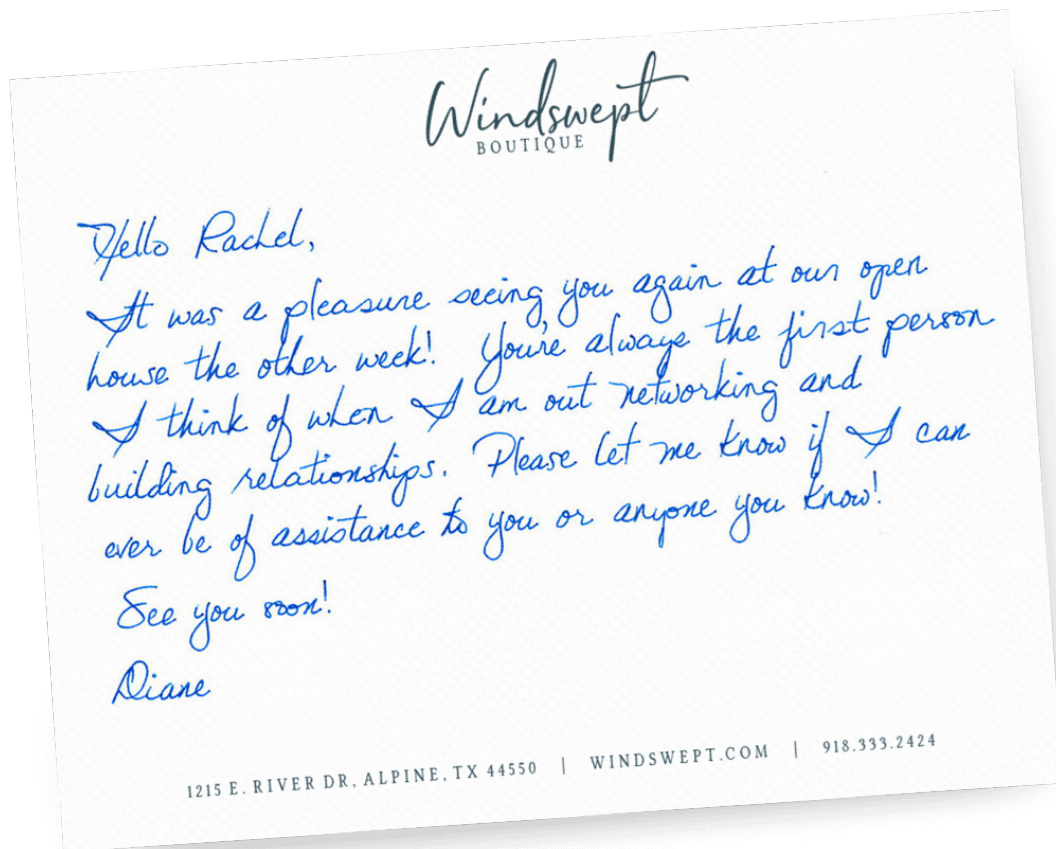 Windswept
BOUTIQUE
Hello Rachel,
It was a pleasure seeing you again at our open
house the other week! You're always the first person
I think of when I am out networking and
building relationships. Please let me know if I can
ever be of assistance to you or anyone you know!
See you soon!
Diane
1215 E. RIVER DR, ALPINE, TX 44550 | WINDSWEPT.COM | 918.333.2424